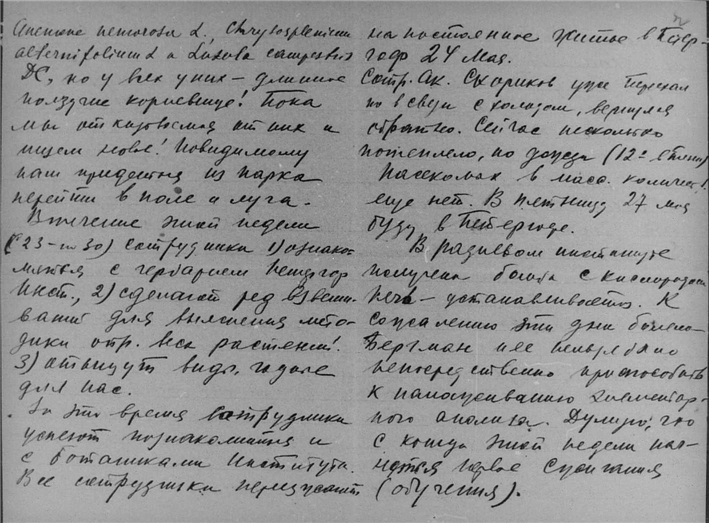 Anemone nemorosa L., Chrysosplenium
alternifolium L и Luzula campestris
DC, но у всех у них – длинное
ползучее корневище! Пока
мы отказываемся от них и
ищем новые! Повидимому
нам придется из парка
перейти в поле и луга.
В течение этой недели
(23–по 30) сотрудники 1) ознако-
мятся с гербарием Петергоф
Инст., 2) сделают ряд взвеши-
ваний для выяснения мето-
дики отр. веса растений.
3) отыщут виды, годные
для нас.
За это время сотрудники
успеют познакомиться и
с ботаниками Института.
Все сотрудники переезжают
на постоянное житье в Петер-
гоф 24 мая.
Сотр. Ак. уже переехал
но в связи с холодом, вернулся
обратно. Сейчас несколько
потеплело, но дожди (12°
Насекомых в масс. количест.
еще нет. В пятницу 27 мая
буду в Петергофе.
В Радиевом институте
получена бомба с кислородом
печь – устанавливается. К
сожалению эти дни
её нельзя было
непосредственно приспособить
к элементар-
ного анализа. Думаю, что
с конца этой недели нач-
нутся первые сжигания
(обучения).